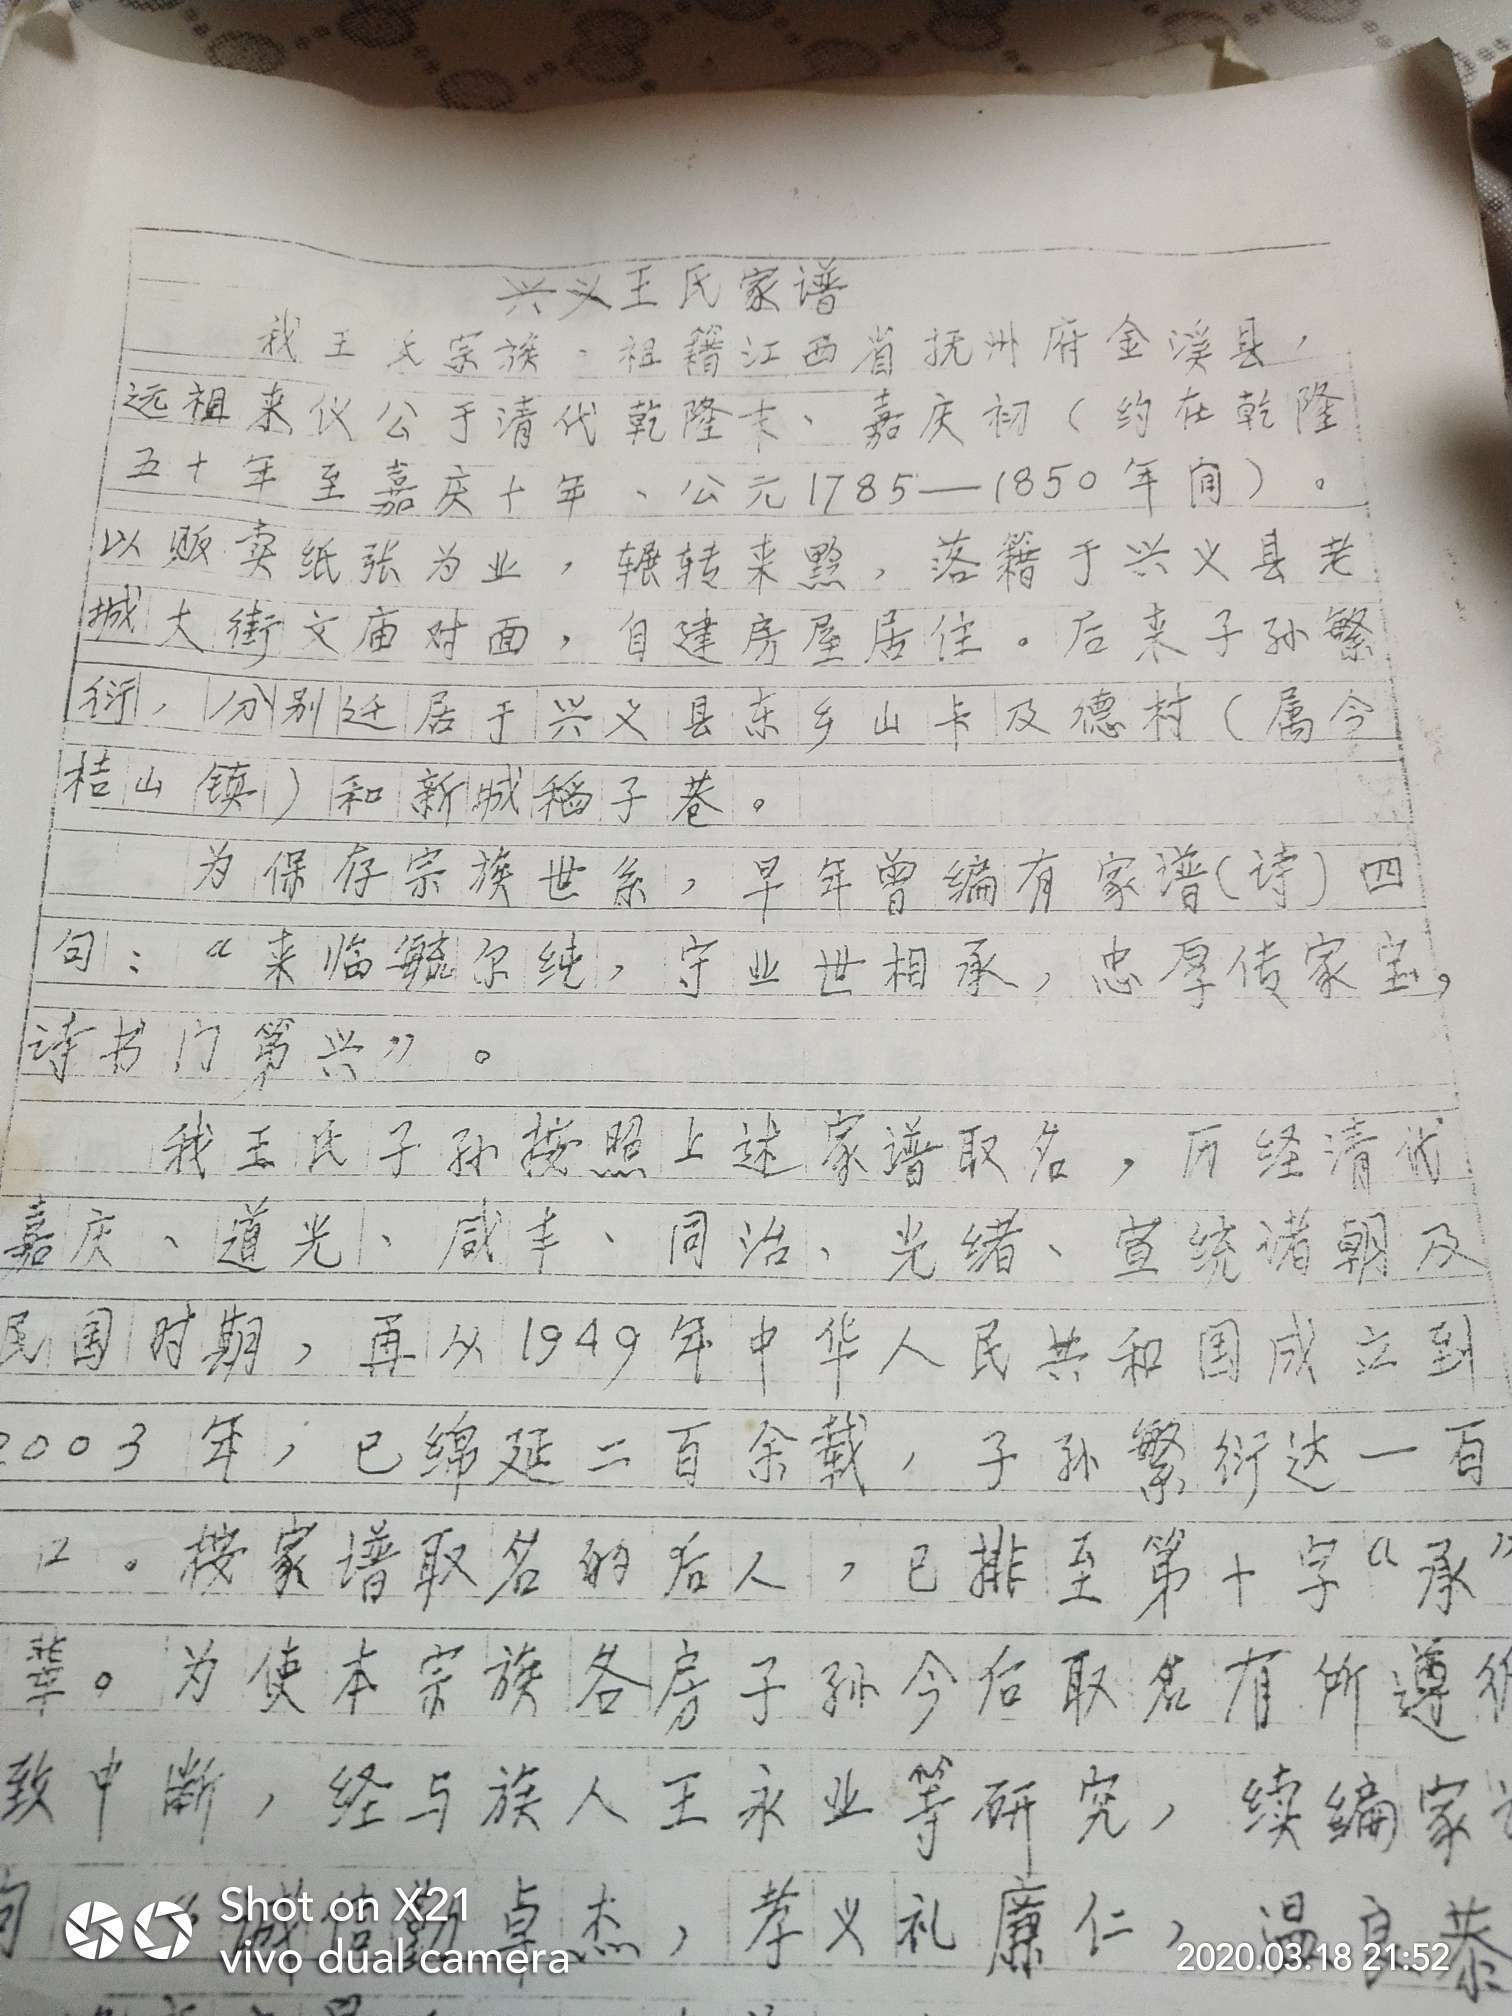 兴义王氏家谱
我王氏宗族、祖籍江西省抚州府金溪县，
远祖来仪公于清代乾隆末、嘉庆初（约在乾隆
五十年至嘉庆十年、公元1785—1850年间）。
以贩卖纸张为业，辗转来黔，落籍于兴义县老
城大街文庙对面，自建房屋居住。后来子孙繁
衍，分别迁居于兴义县东乡山卡及德村（属今
桔山镇）和新城稻子巷。
为保存宗族世系，早年曾编有家谱(诗)四
句：“来临毓尔纯，守业世相承，忠厚传家宝，
诗书门第兴”。
我王氏子孙按照上述家谱取名，历经清代
嘉庆、道光、咸丰、同治、光绪、宣统诸朝及
民国时期，再从1949年中华人民共和国成立到
2003年，已绵延二百余载，子孙繁衍达一百
口。按家谱取名的后人，已排至第十字“承”
辈。为使本宗族各房子孙今后取名有所遵循
致中断，经与族人王永业等研究，续编家
句“诚信勤卓杰，孝义礼廉仁，温良恭
Shot on X21
vivo dual camera
2020.03.18 21:52